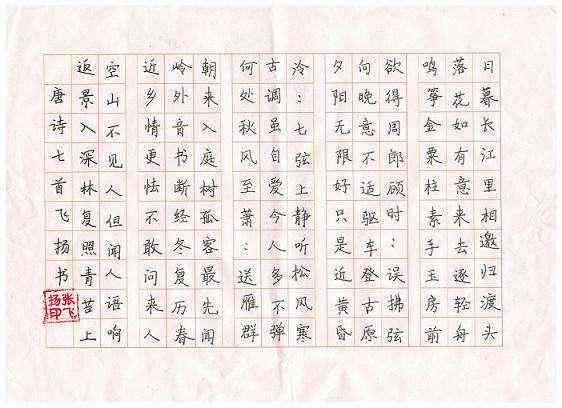 日暮长江里相邀归渡头
落花如有意来去逐轻舟
鸣筝金粟柱素手玉房前
欲得周郎顾时:误拂弦
向晚意不适驱车登古原
夕阳无限好只是近黄昏
泠:七弦上静听松风寒
古调虽自爱今人多不弹
何处秋风至萧:送雁群
朝来入庭树孤客最先闻
岭外音书断经冬复历春
近乡情更怯不敢问来人
空山不见人但闻人语响
返景入深林复照青苔上
唐诗七首飞扬书
张飞扬印